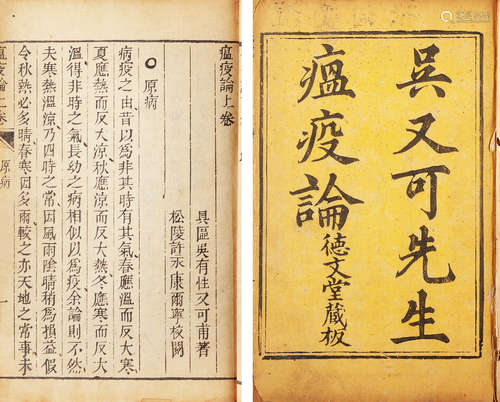 吳又可先生
瘟疫論
德文堂藏板
瘟疫論上卷
具區吳有性又可甫著
松陵許永康爾寧校閱
原病
病疫之由昔以爲非其時有其氣春應溫而反大寒
夏應熱而反大涼秋應涼而反大熱冬應寒而反大
溫得非時之氣長幼之病相似以爲疫余論則不然
夫寒熱溫涼乃四時之常因風雨陰晴稍爲損益假
令秋熱必多晴春寒因多雨較之亦天地之常事未
瘟疫論上卷
原病
一